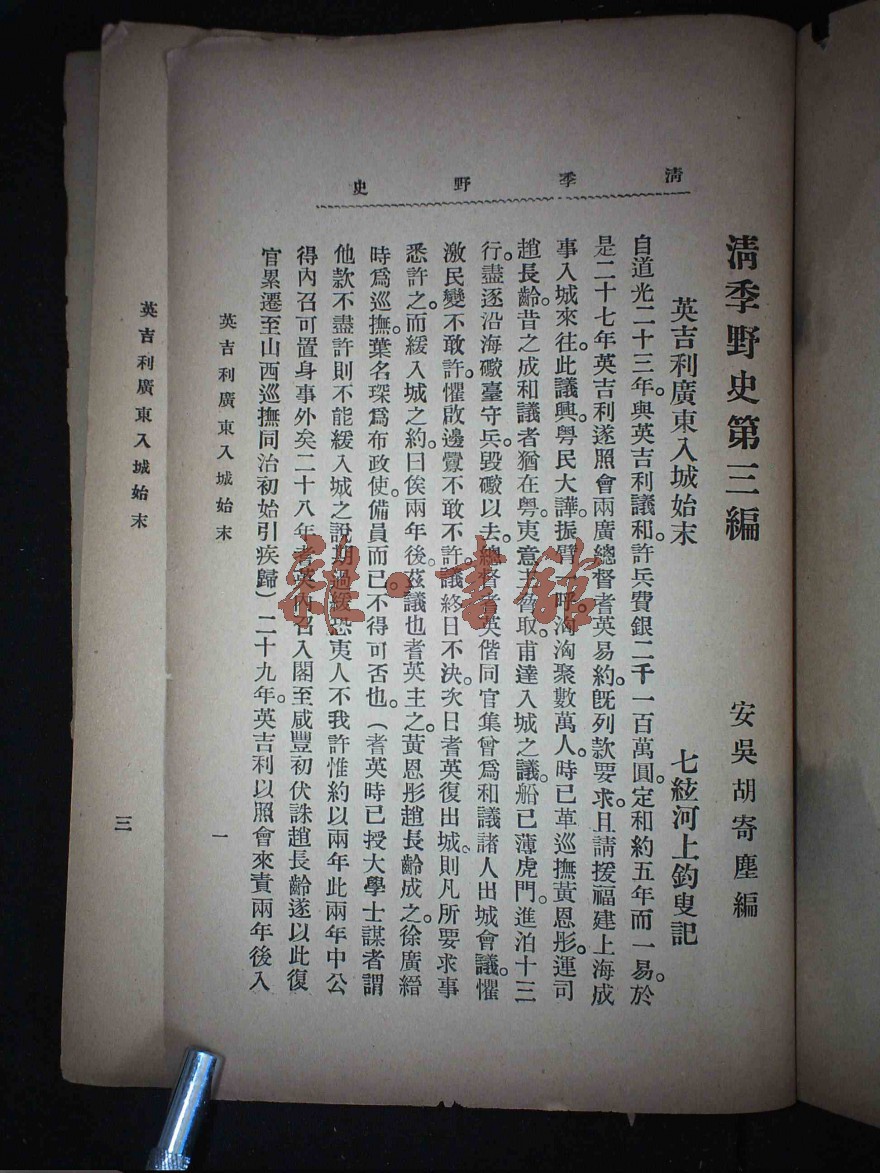 清季野史
清季野史第三編
安吳胡寄塵編
英吉利廣東入城始末
七絃河上釣叟記
自道光二十三年。與英吉利議和。許兵費銀二千一百萬圓。定和約五年而一易。於
是二十七年。英吉利遂照會兩廣總督耆英易約。旣列款要求。且請援福建上海成
事入城來往。此議興。粵民大譁。振臂一呼。洶洶聚數萬人。時已革巡撫黃恩彤。運司
趙長齡。昔之成和議者猶在粵。夷意。甫達入城之議。船已薄虎門。進泊十三
行。盡逐沿海礮臺守兵。毀礮以去。總督耆英偕同官集曾爲和議諸人出城會議。懼
激民變不敢許。懼啟邊釁不敢不許。議終日不決。次日耆英復出城。則凡所要求事
悉許之。而緩入城之約。曰俟兩年後。茲議也耆英主之。黃恩彤趙長齡成之。徐廣縉
時爲巡撫。葉名琛爲布政使。備員而已。不得可否也。（耆英時已授大學士謀者謂
他款不盡許則不能緩入城之說期過緩恐夷人不我許惟約以兩年此兩年中公
得內召可置身事外矣二十八年耆英內召入閣至咸豐初伏誅趙長齡遂以此復
官累遷至山西巡撫同治初始引疾歸）二十九年。英吉利以照會來責兩年後入
英吉利廣東入城始末
一
英吉利廣東入城始末
三
雜·書館